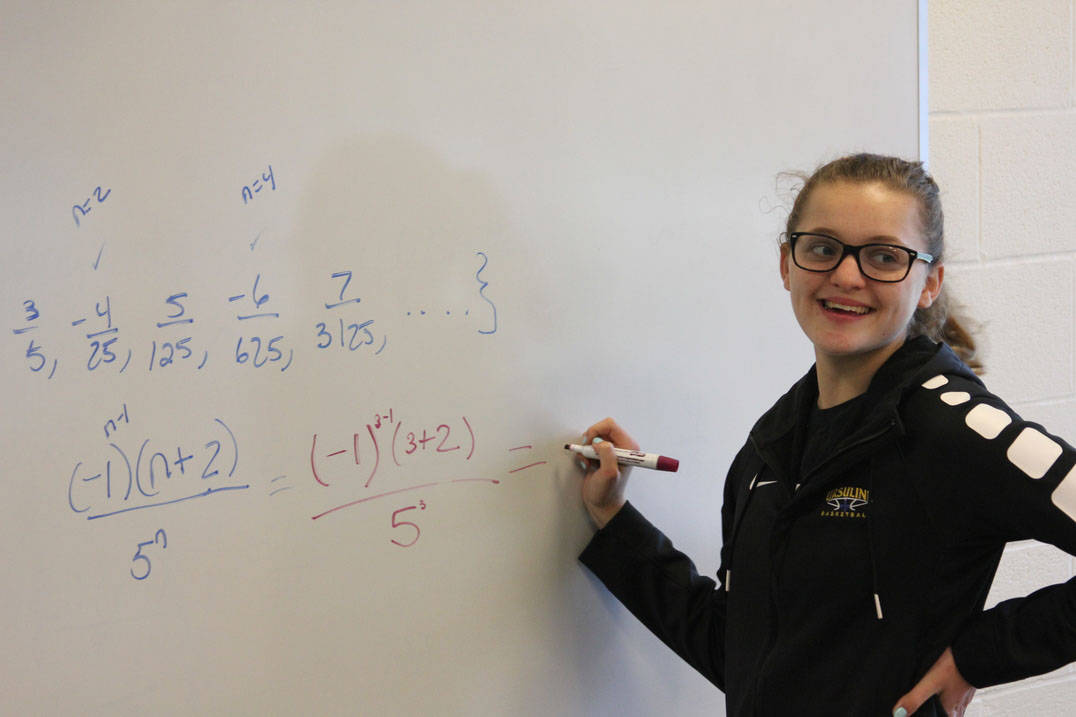 n=2 n=4
3/5, -4/25, 5/125, -6/625, 7/3125, ....}
(-1)^(n-1)(n+2)/5^n = (-1)^(3-1)(3+2)/5^3 =
URSULINE
BASKETBALL